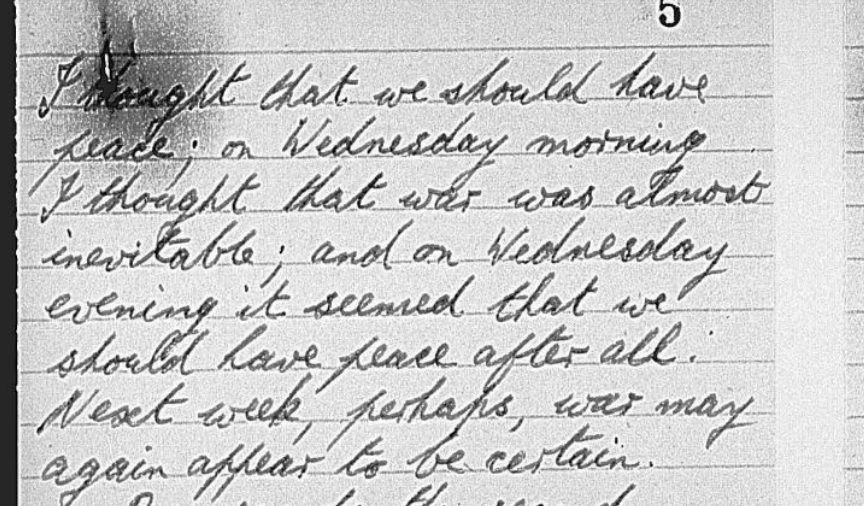 5
I thought that we should have
peace; on Wednesday morning
I thought that war was almost
inevitable; and on Wednesday
evening it seemed that we
should have peace after all.
Next week, perhaps, war may
again appear to be certain.